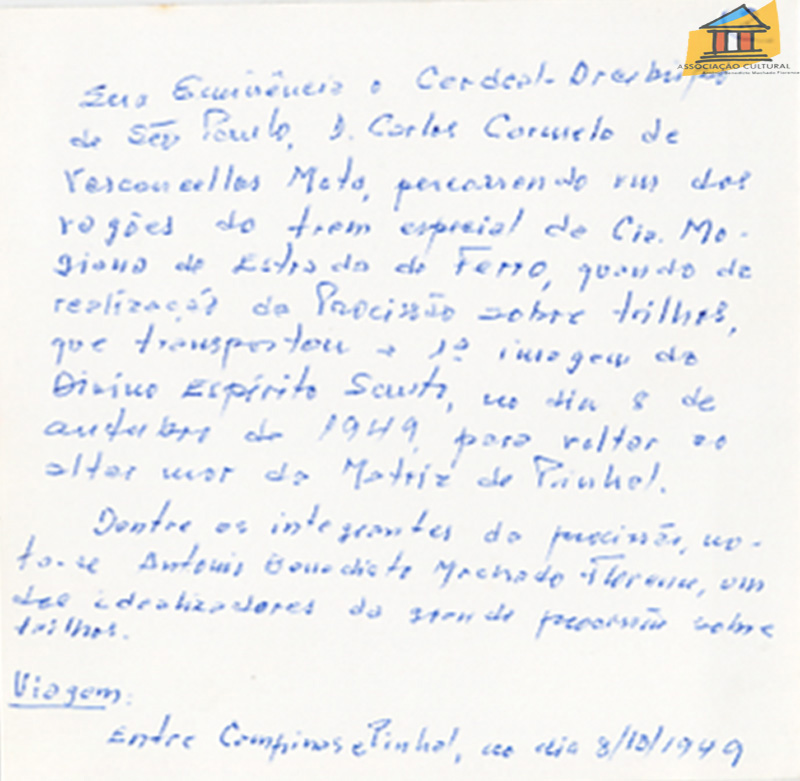 ASSOCIAÇÃO CULTURAL
Antonio Benedicto Machado Florence
Sua Eminência o Cardeal-Arcebispo
de São Paulo, D. Carlos Carmelo de
Vasconcellos Mota, percorrendo um dos
vagões do trem especial da Cia. Mo-
giana de Estrada de Ferro, quando da
realização da Procissão sobre trilhos,
que transportou a 1ª imagem do
Divino Espírito Santo, no dia 8 de
outubro de 1949, para voltar ao
altar mor da Matriz de Pinhal.
Dentre os integrantes da procissão, no-
ta-se Antonio Benedicto Machado Florence, um
dos idealizadores da grande procissão sobre
trilhos.
Viagem:
Entre Campinas e Pinhal, no dia 8/10/1949